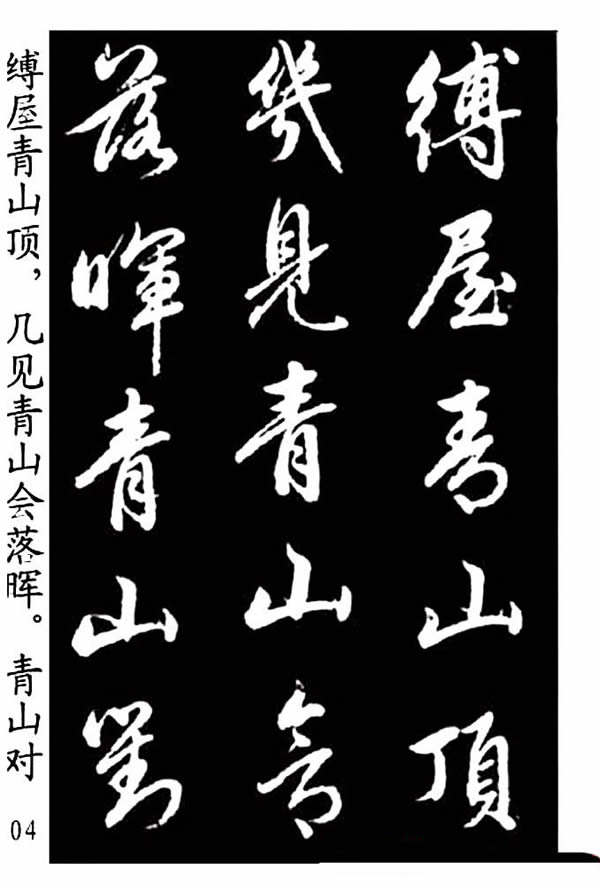 縛屋青山頂
幾見青山會
落暉青山對
缚屋青山顶，几见青山会落晖。青山对
04